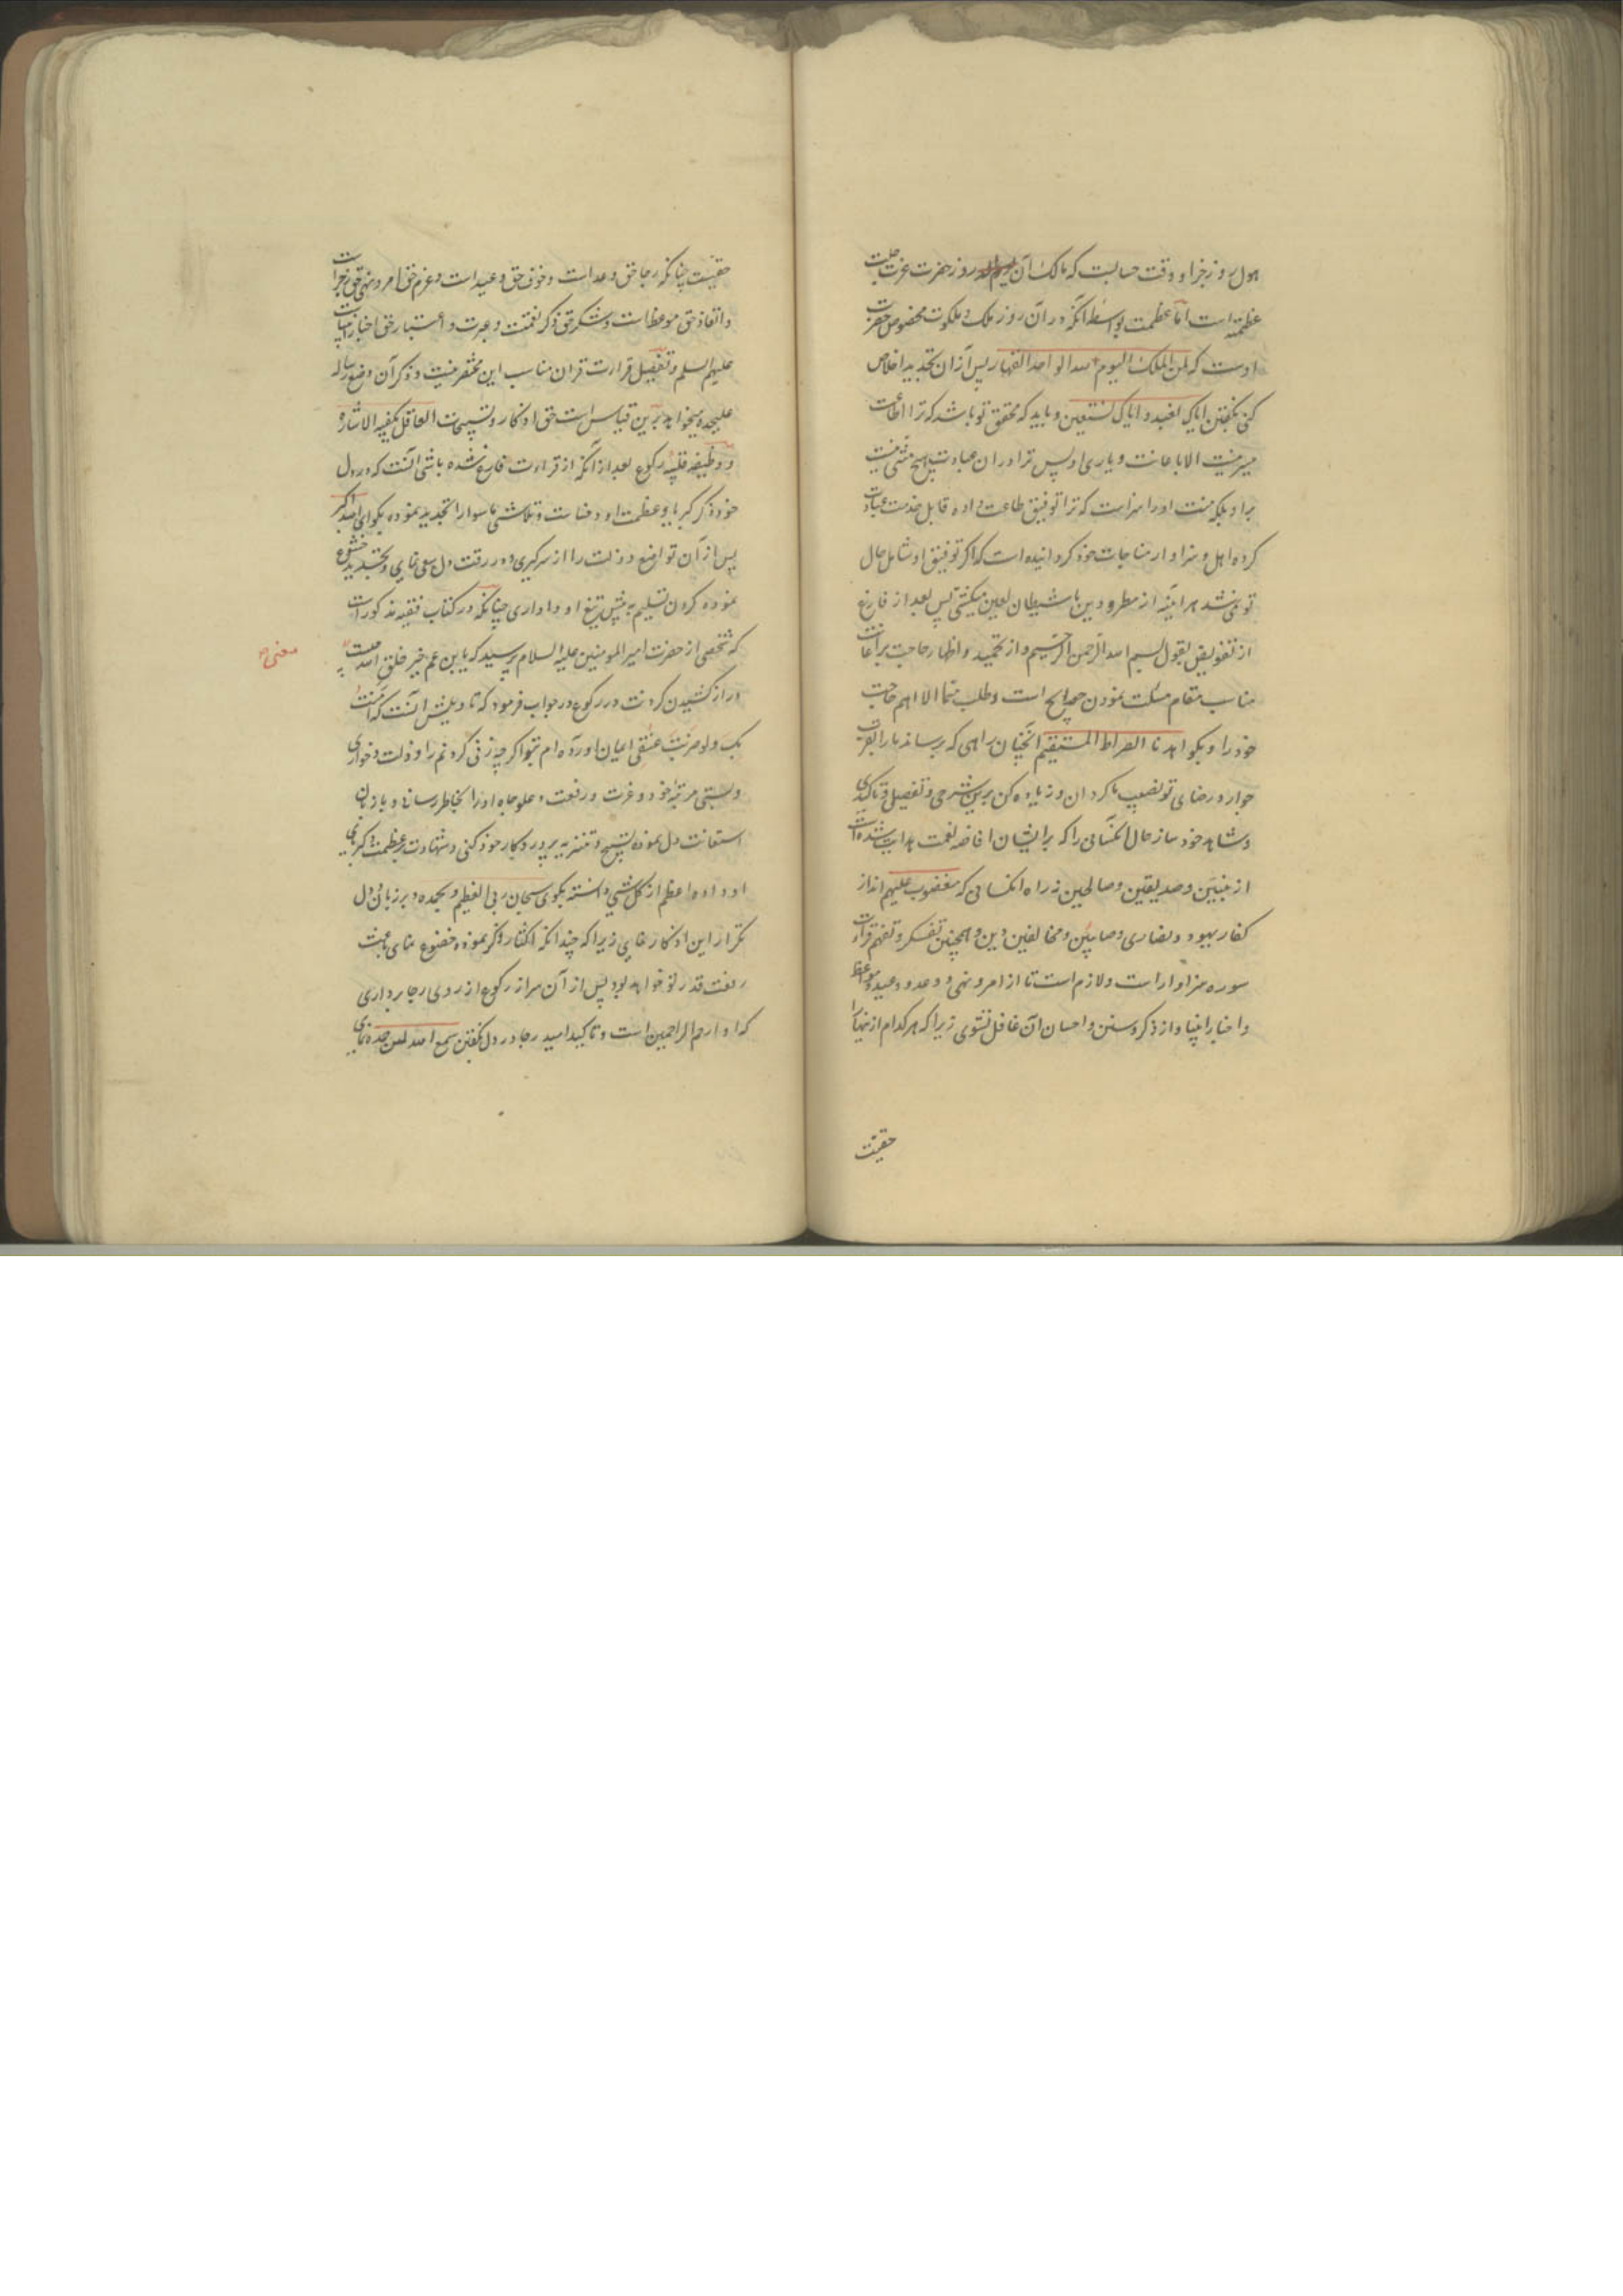 هول روز جزا و وقت حسابست که مالک آن روز حضرت عزت جلت
عظمته است اما عظمت بواسطه آنکه در آن روز ملک و ملکوت مخصوص حضرت
اوست که لمن الملک الیوم لله الواحد القهار پس از آن تجدید اخلاص
کنی بگفتن ایاک نعبد و ایاک نستعین و باید که محقق تو باشد که ترا اطاعت
میسر نیست الا باعانت و یاری او پس ترا در آن عبادت هیچ منتی نیست
بر او بلکه منت او را سزاست که ترا توفیق طاعت داده قابل خدمت و عبادت
کرده اهل و سزاوار مناجات خود کردانیده است که اکر توفیق او شامل حال
تو نمی شد هر آینه از مطرودین با شیطان لعین میکشتی پس بعد از فارغ
از تفویض بقول بسم الله الرحمن الرحیم و از تحمید و اظهار حاجت بر اعانت
مناسب مقام مسئلت نمودن حوایج است و طلب منما الا اهم حاجت
خود را و بکو اهدنا الصراط المستقیم آنچنان راهی که برساند ما را بقرب
جوار و رضای تو نصیب ما کردان و زیاده کن برین شرحی و تفصیل و تاکیدی
و شاهد خود ساز حال آنکسانی را که بر ایشان افاضه نعمت هدایت شده است
از نبیین و صدیقین و صالحین نه راه آنکسانی که مغضوب علیهم اند از
کفار یهود و نصاری و صابیین و مخالفین دین و همچنین تفکر و تفهم قرائت
سوره سزاوار است و لازم است تا از امر و نهی و وعد و وعید و مواعظ
و اخبار انبیا و از ذکر و سنن و احسان آن غافل نشوی زیرا که هر کدام از اینها را
حقیست
حقیست چنانکه رجا حق وعد است و خوف حق وعید است و عزم حق امر و نهی حق زجر است
و اتعاظ حق موعظه است و شکر حق ذکر نعمت و عبرت و اعتبار حق اخبار انبیاست
علیهم السلم و تفصیل قرائت قران مناسب این مختصر نیست و ذکر آن وضع رساله
علیحده میخواهد برین قیاس است حق اذکار و تسبیحات العاقل یکفیه الاشاره
و وظیفه قلبیه رکوع بعد از آنکه از قراءت فارغ شده باشی آنست که در دل
خود ذکر کبریا و عظمت او و فناست و تلاشی ما سوا را تجدید نموده بکوئی الله اکبر
پس از آن تواضع و ذلت را از سر کیری و در رقت دل سعی نمایی و تجدید خشوع
نموده کردن تسلیم به پیش تیغ او و اداری چنانکه در کتاب فقیه مذکور است
که شخصی از حضرت امیر المومنین علیه السلام پرسید که یابن عم خیر خلق الله چیست
معنی
دراز کشیدن کردنت در رکوع در جواب فرمود که تاویلش آنست که آمنت
بک و لو ضربت عنقی ایمان آورده ام بتو اکر چه زنی کردنم را و ذلت و خواری
و پستی مرتبه خود و عزت و رفعت و علو جاه او را بخاطر رسانی و با زبان
استعانت دل نموده تسبیح و تنزیه پروردکار خود کنی و شهادت بر عظمت و کبریای
او داده اعظم از کل شی دانسته بکوی سبحان ربی العظیم و بحمده و بر زبان دل
تکرار این اذکار نمایی زیرا که چندانکه اکثار ذکر نموده خضوع نمای باعث
رفعت قدر تو خواهد بود پس از آن سر از رکوع از روی رجا برداری
که او ارحم الراحمین است و تاکید امید رجا در دل بکفتن سمع الله لمن حمده نمایی